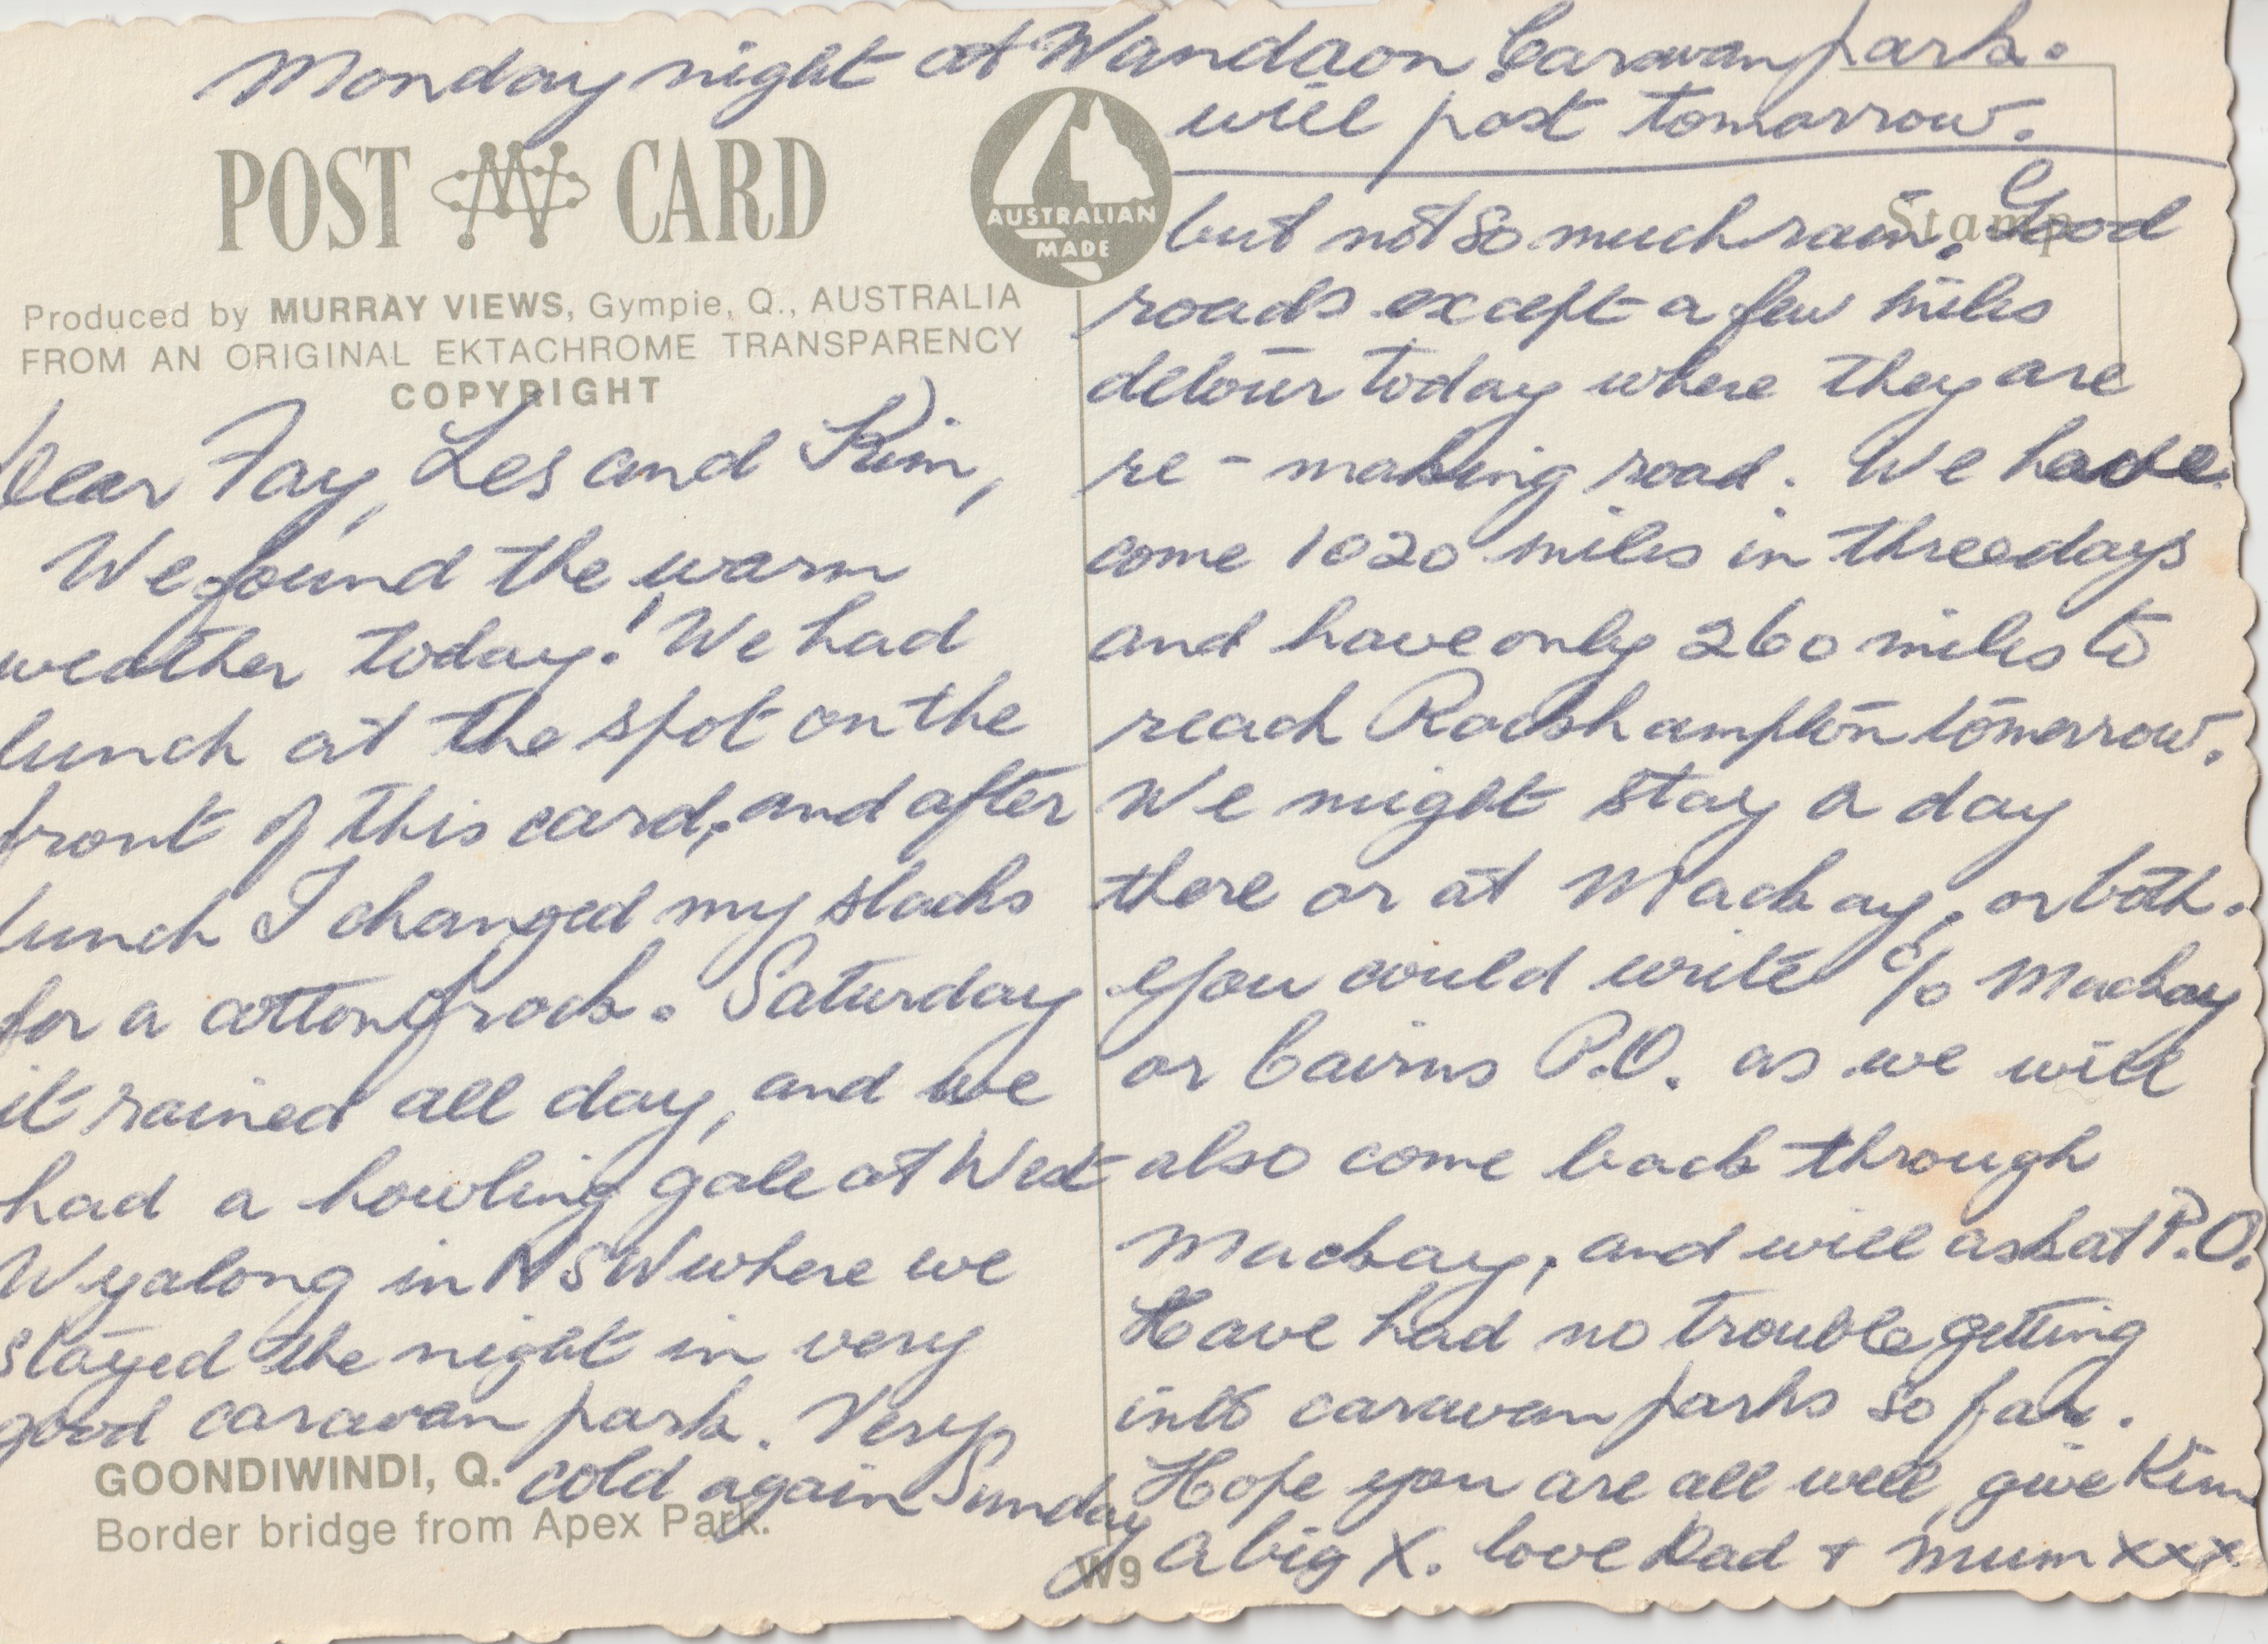 Monday night at Wandaon Caravan park.
will post tomorrow.
POST CARD
AUSTRALIAN
MADE
Stamp
Produced by MURRAY VIEWS, Gympie, Q., AUSTRALIA
FROM AN ORIGINAL EKTACHROME TRANSPARENCY
COPYRIGHT
Dear Fay, Les and Kim,
We found the warm
weather today! We had
lunch at the spot on the
front of this card, and after
lunch I changed my slacks
for a cotton frock. Saturday
it rained all day, and we
had a howling gale at West
Wyalong in NSW where we
stayed the night in very
good caravan park. Very
cold again Sunday
GOONDIWINDI, Q.
Border bridge from Apex Park.
W9
but not so much rain. Good
roads except a few miles
detour today where they are
re-making road. We have
come 1020 miles in three days
and have only 260 miles to
reach Rockhampton tomorrow.
We might stay a day
there or at Mackay, or both.
You could write c/o Mackay
or Cairns P.O. as we will
also come back through
Mackay, and will ask at P.O.
Have had no trouble getting
into caravan parks so far.
Hope you are all well, give Kim
a big X. love Dad + mum xxx